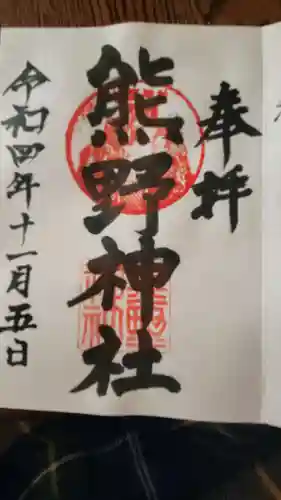 奉拝
熊野神社
令和四年十一月五日